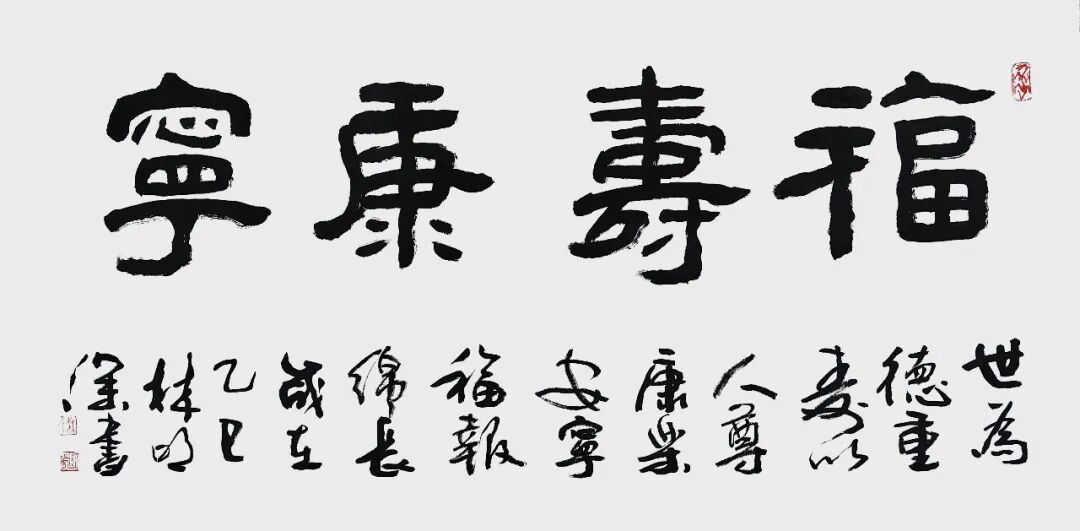 福壽康寧
世為
德重
壽以
人尊
康樂
安寧
福報
綿長
歲在
乙巳
林明
深書